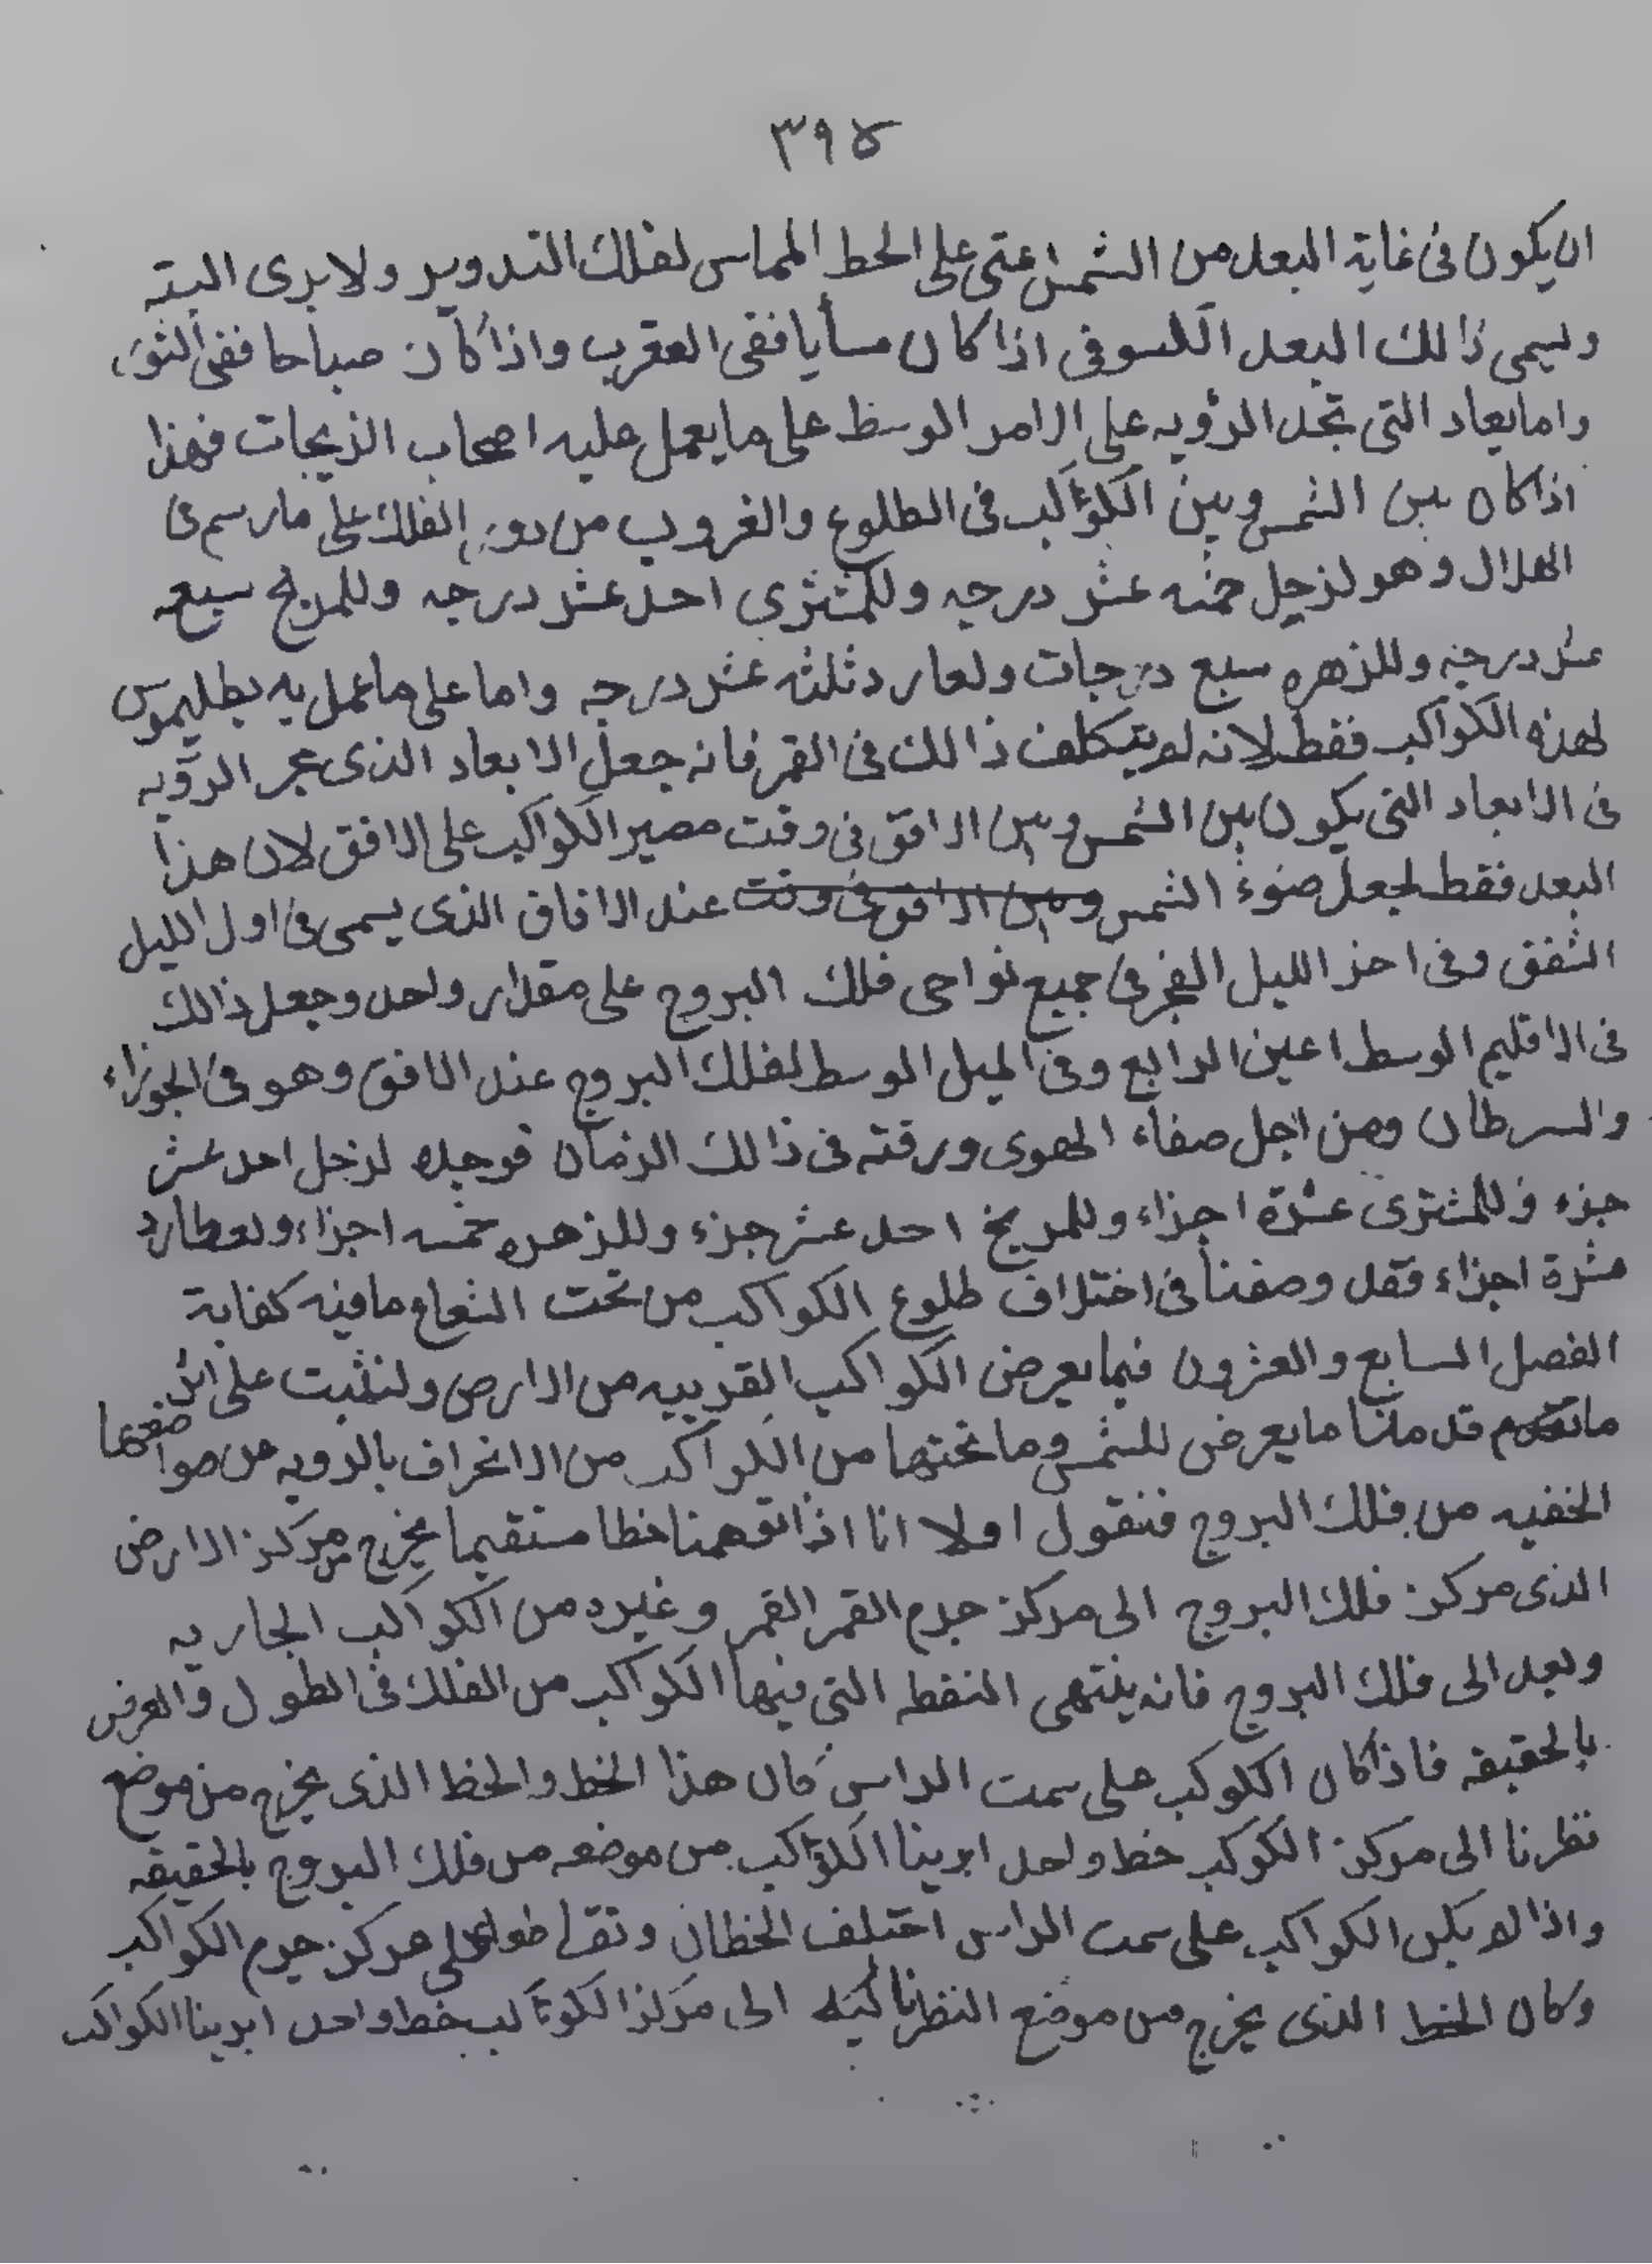 ٣٩٥
ان يكون فى غاية البعد من الشمس عتى على الحط المماس لفلك التدوير ولا يرى البته
وليمى ذالك البعد الكسوفى اذا كان مسأيا ففى العقرب واذا كان صباحا ففى الثور
واما يعاد التى تجد الرؤيه على الامر الوسط على ما يعمل عليه اصحاب الزيجات فهذا
اذا كان بين الشمس وبين الكواكب فى الطلوع والغروب من دور الفلك على ما رسم فى
الهلال وهو لزحل خمسه عشر درجه وللمشترى احد عشر درجه وللمريخ سبعه
عشر درجه وللزهره سبع درجات ولعارد ثلثه عشر درجه واما على ما عمل به بطليموس
لهذه الكواكب فقط لانه لم يتكلف ذالك فى القمر فانه جعل الابعاد الذى عجر الرؤيه
فى الابعاد التى يكون بين الشمس وبين الافق فى وقت مصير الكواكب على الافق لان هذا
البعد فقط لجعل ضوء الشمس وبين الافق فى وقت عند الافاق الذى يسمى فى اول الليل
الشفق وفى اخر الليل الفجر فى جميع نواحى فلك البروج على مقدار واحد وجعل ذالك
فى الاقليم الوسط اعين الرابع وفى الميل الوسط لفلك البروج عند الافق وهو فى الجوزاء
والسرطان ومن اجل صفاء الهوى ورقته فى ذالك الزمان فوجده لزحل احد عشر
جزء وللمشترى عشرة اجزاء وللمريخ احد عشر جزء وللزهره خمسه اجزاء ولعطارد
عشرة اجزاء فقد وصفنا فى اختلاف طلوع الكواكب من تحت الشعاع ما فيه كفاية
الفصل السابع والعشرون فيما يعرض الكواكب القريبه من الارض ولنثبت على اثر
ما تقدم قد منا ما يعرض للشمس وما تحتها من الكواكب من الانحراف بالرويه عن مواضعها
الخفيه من فلك البروج فنقول اولا انا اذا توهمنا خطا مستقيما يخرج من مركز الارض
الذى مركز فلك البروج الى مركز جرم القمر القمر وغيره من الكواكب الجاريه
وبعد الى فلك البروج فانه ينتهى النقطه التى فيها الكواكب من الفلك فى الطول والعرض
بالحقيقه فاذا كان الكوكب على سمت الراس كان هذا الخط والحظ الذى يخرج من موضع
نظرنا الى مركز الكوكب خط واحد ابرينا الكواكب من موضعه من فلك البروج بالحقيقه
واذا لم يكن الكواكب على سمت الراس اختلف الخطان وتقاطعوا على مركز جرم الكواكب
وكان الخط الذى يخرج من موضع النظرنا كيله الى مركز الكواكب خط واحد ابرينا الكواكب